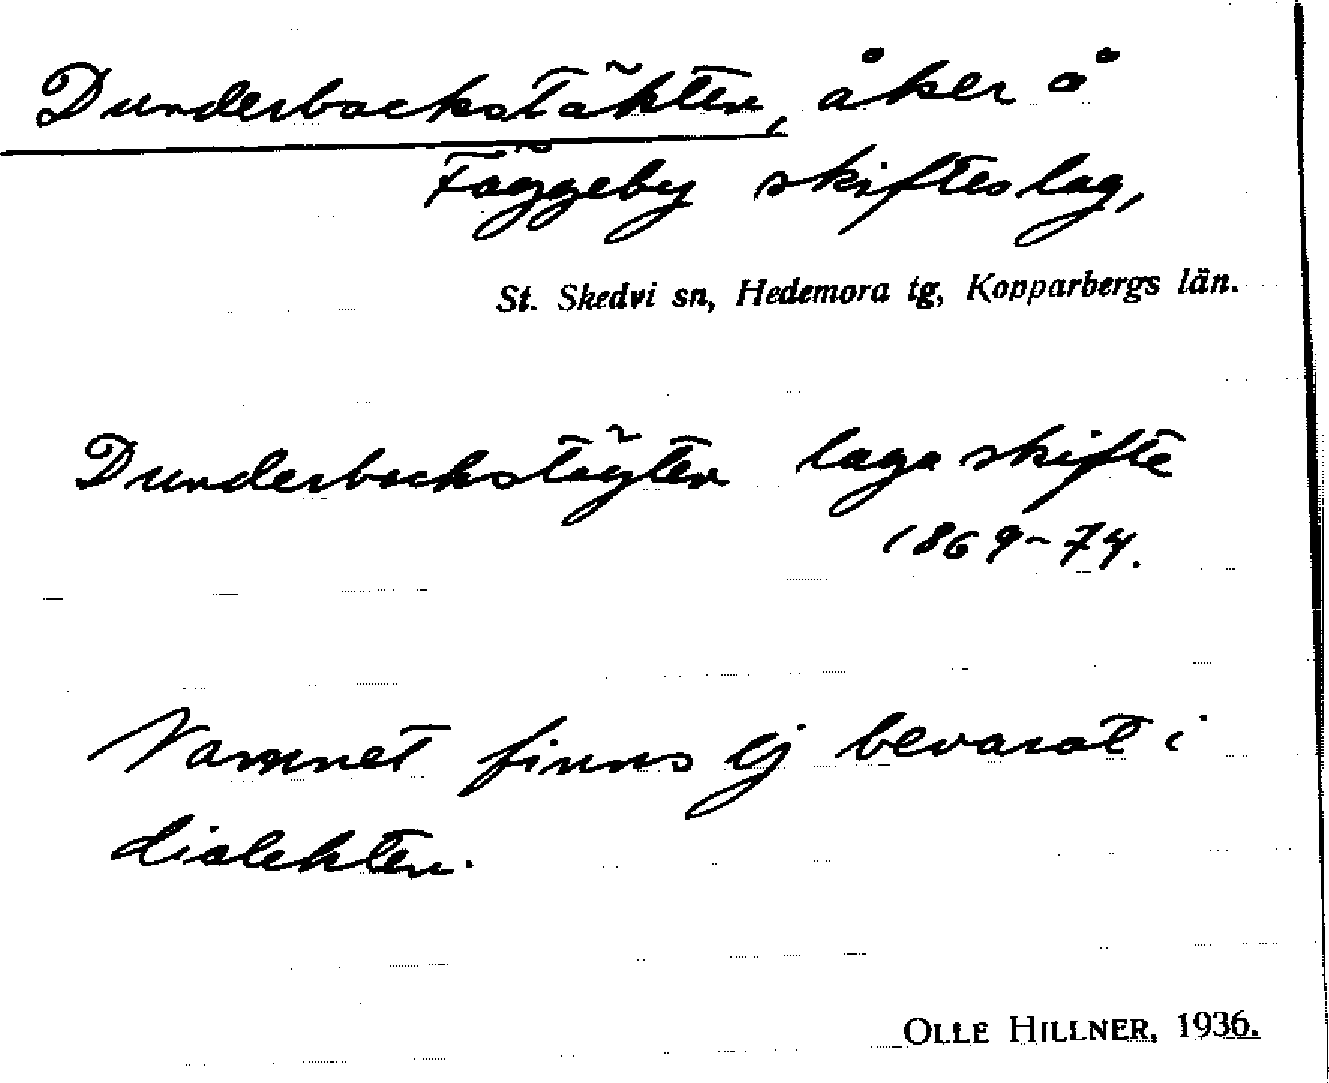 Dunderbackstäkten, åker å
Fäggeby skifteslag,
St. Skedvi sn, Hedemora tg, Kopparbergs län.
Dunderbackstägten laga skifte
1869-74.
Namnet finns ej bevarat i
dialekten.
OLLE HILLNER, 1936.